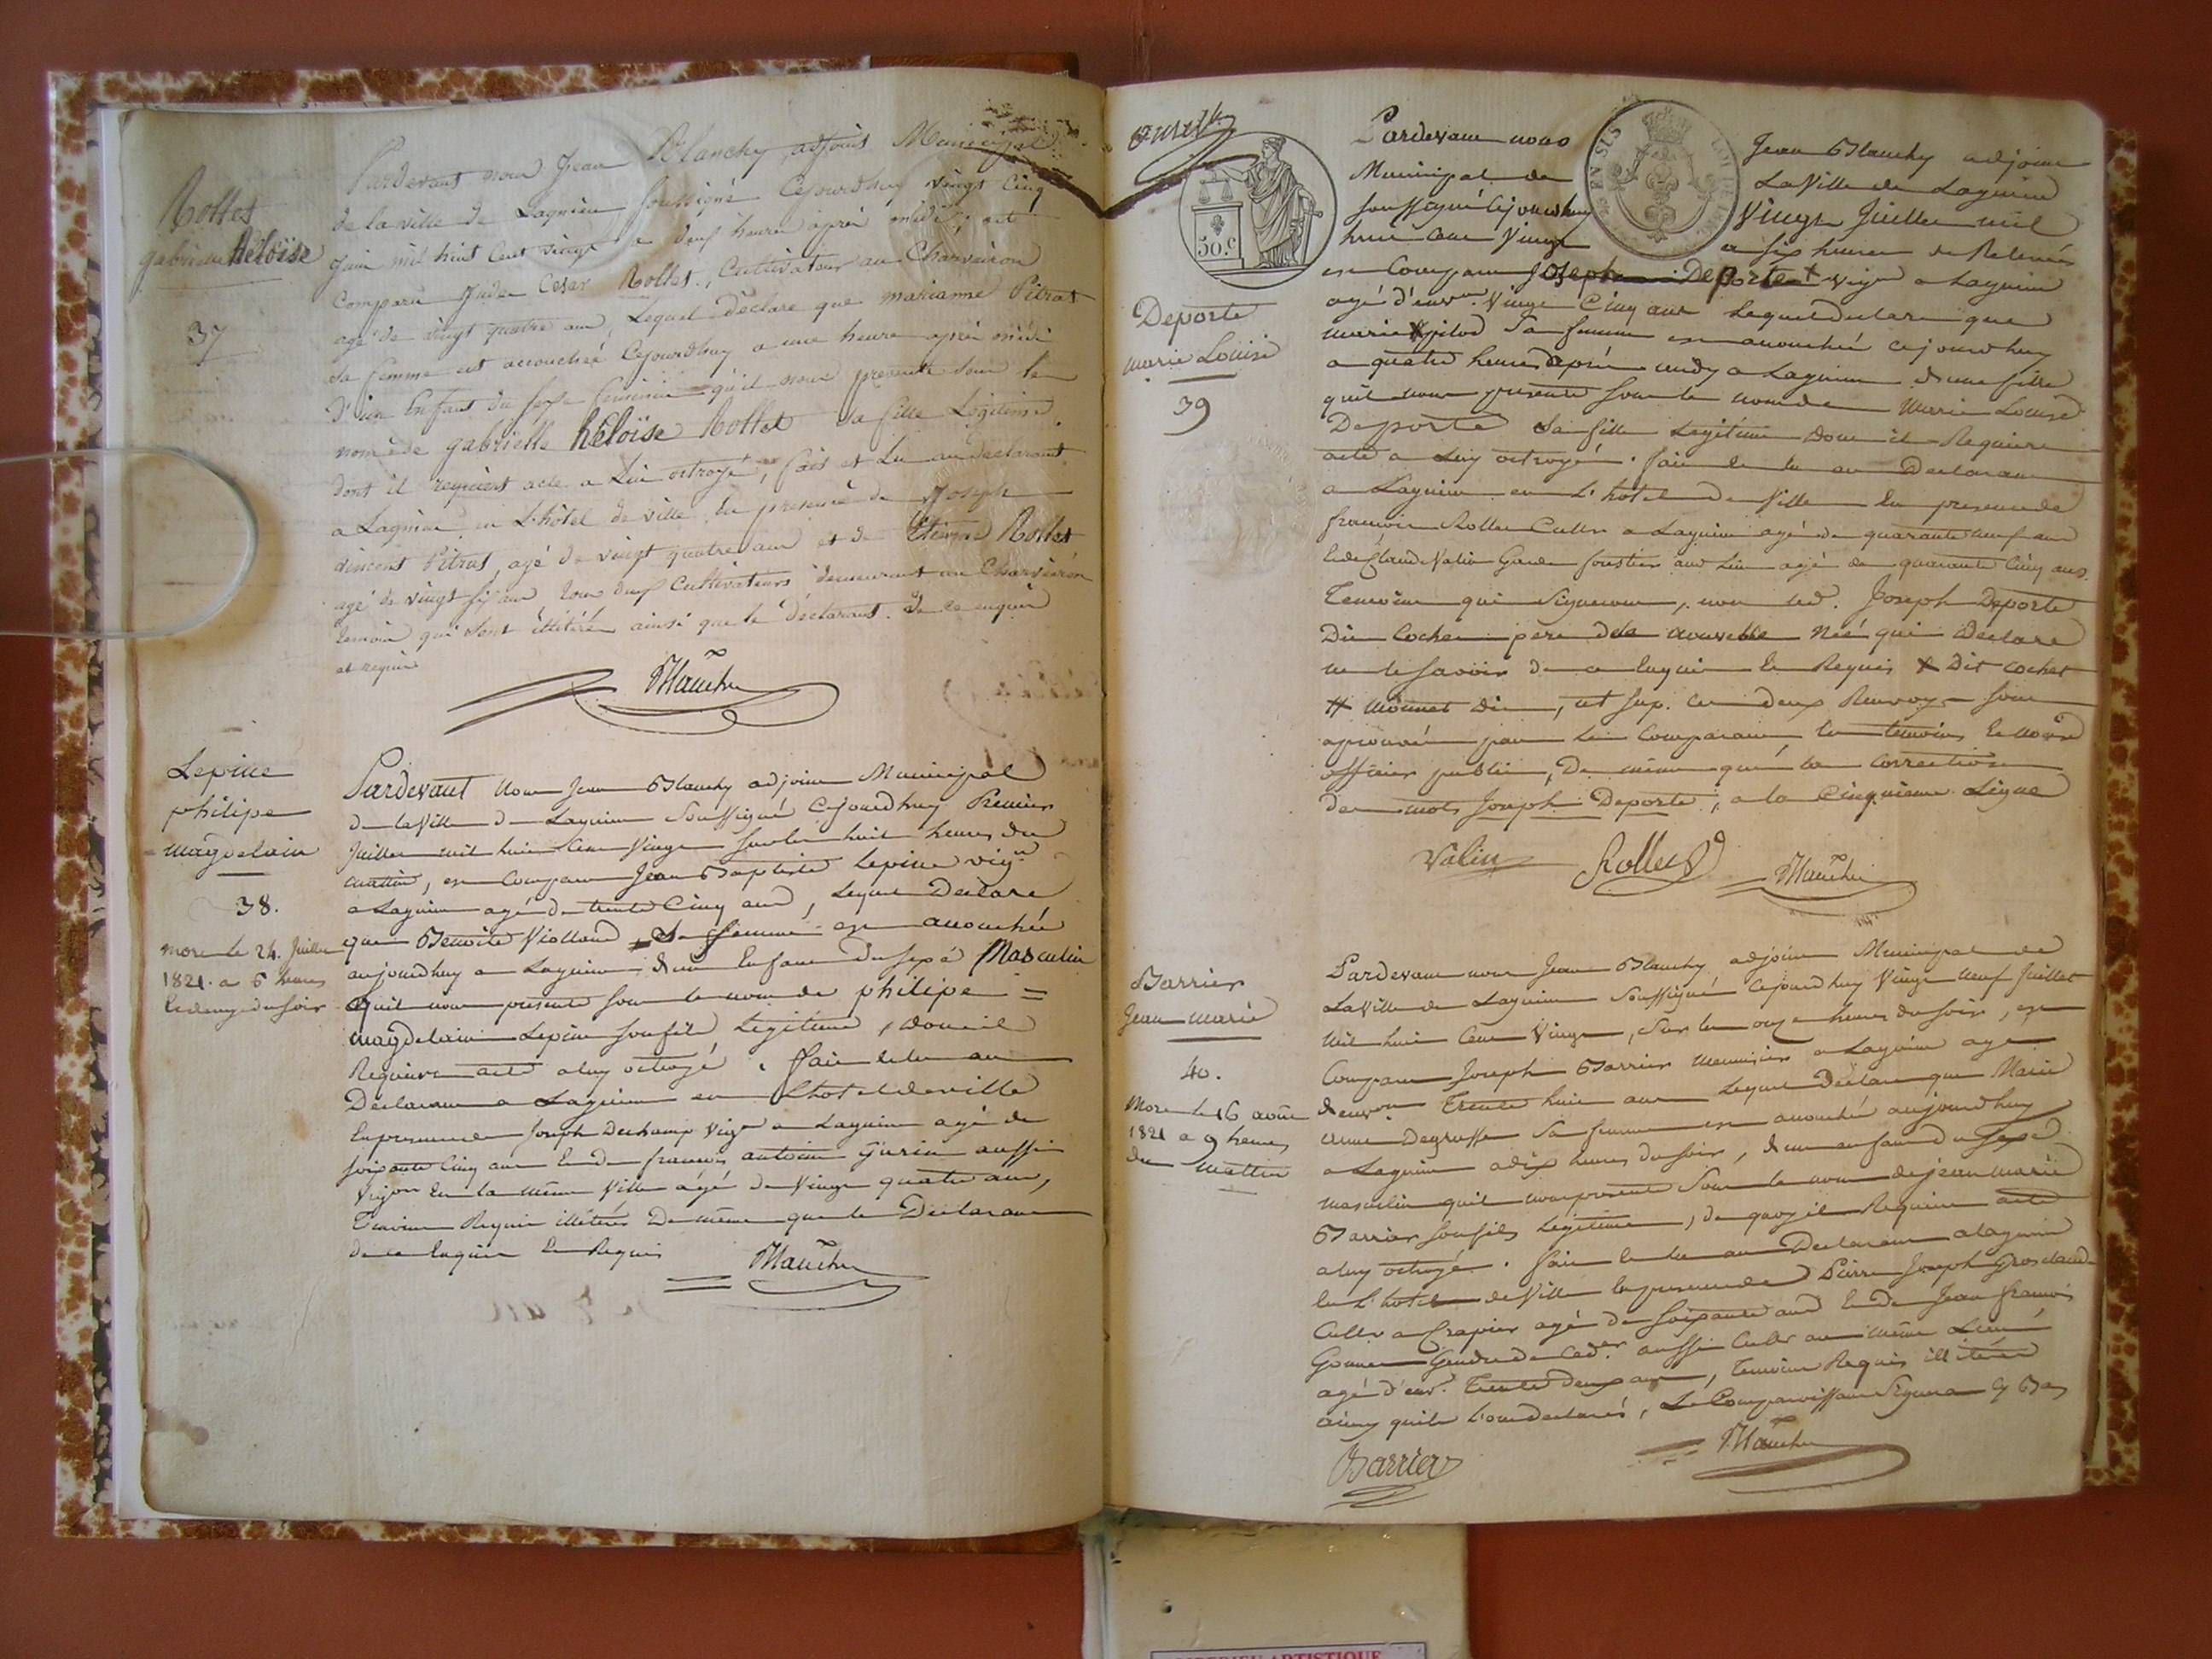 Rollet
gabrielle héloïse
37
Pardevant nous Jean Blanchy adjoint Municipal
de la ville de Lagnieu soussigné Cejourdhuy vingt cinq
juin mil huit Cent vingt a deux heures après midi, est
Comparu César Rollet, Cultivateur au Charveiron
agé de vingt quatre ans, Lequel déclare que marianne Pitrat
sa femme est accouchée Cejourdhuy a une heure après midi
D'un Enfant du sexe féminin qu'il nous présente sous le
nom de gabrielle héloïse Rollet sa fille Légitime
dont il requiert acte a Lui octroyé, fait et Lu au déclarant
a Lagnieu en L'hôtel de ville en présence de Joseph
vincent Pitrat, agé de vingt quatre ans et de Etienne Rollet
agé de vingt six ans tous deux Cultivateurs demeurant au Charveiron
temoins qui sont illitérés ainsi que le Déclarant. de ce enquis
et requis
Blanchy
Lepine
philipe
magdelain
38.
mort le 24. Juillet
1821. a 6 heures
du soir
Pardevant Nous Jean Blanchy adjoint Municipal
de la Ville de Lagnieu Soussigné Cejourdhuy Premier
Juillet mil huit Cent Vingt sur les huit heures du
matin, est Comparu Jean Baptiste Lepine vign
a Lagnieu agé de trente Cinq ans, Lequel Déclare
que Benoite Violland sa femme est accouchée
aujourdhuy a Lagnieu d'un Enfant du sexe Masculin
quil nous présente sous le nom de philipe =
magdelain Lepine son fils Legitime, dont il
Requiere acte a luy octroyé. fait et lu au
Déclarant a Lagnieu en Lhotel de ville
En presence de Joseph Deschamp vign a Lagnieu agé de
soixante Cinq ans et de francois antoine Gurin aussi
vign en la même Ville agé de Vingt quatre ans,
Témoins Requis illitérés De même que le Déclarant
de ce Enquis et Requis
Blanchy
50.c
Deporte
marie Louise
39
Pardevant nous Jean Blanchy adjoint
Municipal de La Ville de Lagnieu
soussigné Cejourdhuy Vingt Juillet mil
huit Cent Vingt a six heures de Relevée
est Comparu Joseph Deporte + vign a Lagnieu
agé d'env.on Vingt Cinq ans Lequel declare que
marie # pilod Sa femme est accouchée cejourdhuy
a quatre heures après midy a Lagnieu d'une fille
quil nous présente sous le nom de Marie Louise
Deporte sa fille Legitime dont il Requiere
acte a Luy octroyé. fait et lu au Declarant
a Lagnieu en L'hotel de Ville En presence de
francois Rollet Cultr a Lagnieu agé de quarante neuf ans
et de Claud Valin Garde forestier aud Lieu agé de quarante Cinq ans
Temoins qui Signeront, non led. Joseph Deporte
Dit Cochet pere de la nouvelle Née qui declare
ne le savoir de ce Enquis et Requis + Dit cochet
# monnet dit, ut sup. Ces deux Renvoys sont
aprouvés par Le Comparant les temoins Et nous
officier public, De même que la Correction
des mots Joseph Deporte, a la Cinquieme Ligne
Valin Rollet Blanchy
Barrier
Jean Marie
40.
Mort le 16 aoust
1821 a 9 heures
du mattin
Pardevant nous Jean Blanchy adjoint Municipal de
La Ville de Lagnieu Soussigné Cejourdhuy Vingt neuf Juillet
mil huit Cent Vingt, Sur les onze heures du soir, est
Comparu Joseph Barrier Menuisier a Lagnieu agé
d'environ Trente huit ans Lequel Déclare que Marie
anne Degrusse Sa femme est accouchée aujourdhuy
a Lagnieu a dix heures du soir, d'un enfant du sexe
masculin quil nous presente Sous le nom de jean marie
Barrier son fils Legitime, de quoy il Requiere acte
a luy octroyé. fait et lu au Declarant a Lagnieu
En L'hotel de Ville En presence de Pierre Joseph Grosclaude
Cultr a Crapier agé de soixante ans Et de Jean francois
Gendre de aussi Cultr au même Lieu
agé d'env.n Trente deux ans, Temoins Requis illitérés
ainsy quils l'ont declarés, Le Comparoissant Signera cy Bas
Barrier Blanchy
ARTISTIQUE